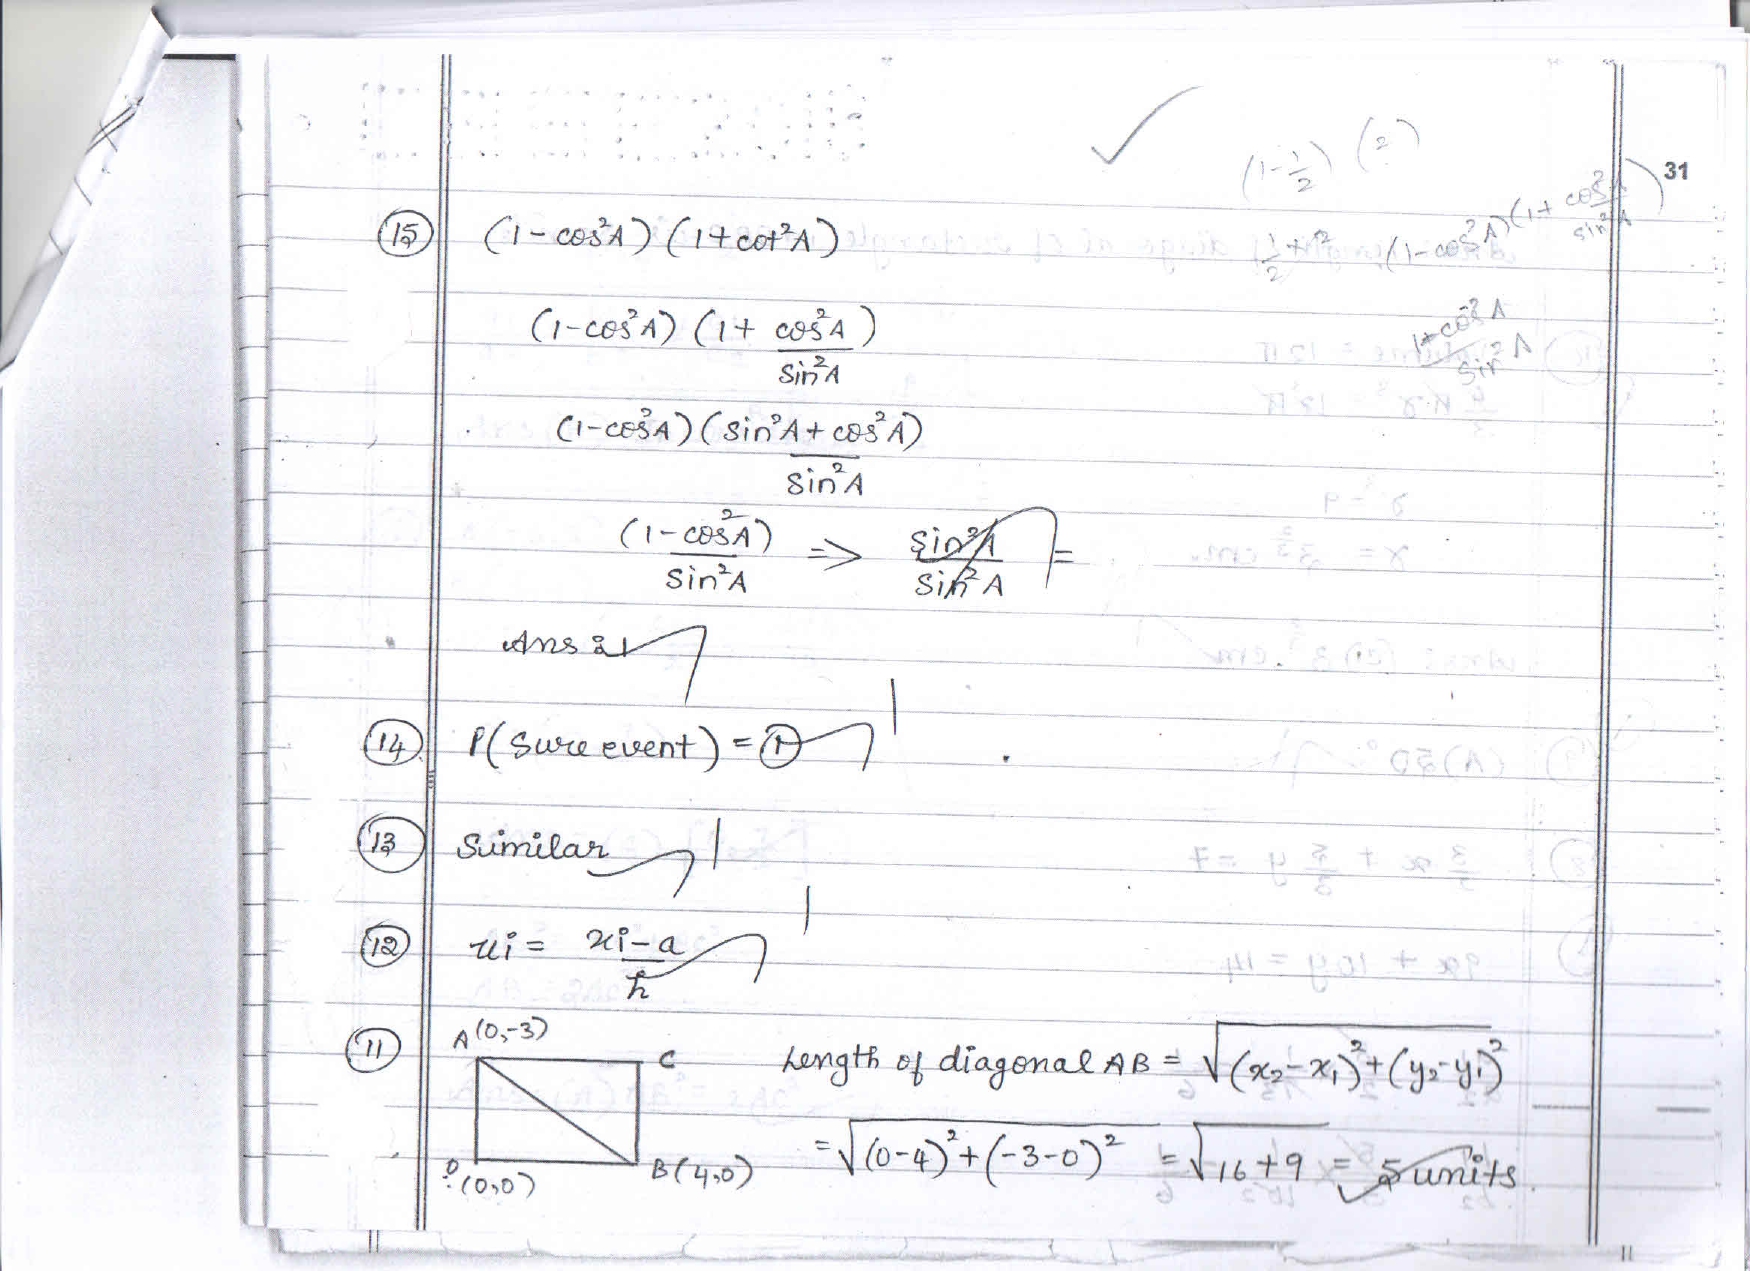 31
(1-1/2) (2)
(1-cos²A)(1+cos²A/sin²A)
(15) (1-cos²A) (1+cot²A)
(1-cos²A) (1+ cos²A/sin²A)
(1-cos²A) (sin²A+cos²A)/sin²A
(1-cos²A)/sin²A => sin²A/sin²A =
Ans : 1
(14) P(Sure event) = 1
(13) Similar
(12) ui = xi-a/h
(11) A(0,-3) C Length of diagonal AB = √(x₂-x₁)²+(y₂-y₁)²
= √(0-4)²+(-3-0)² = √16+9 = 5 units.
(0,0) B(4,0)